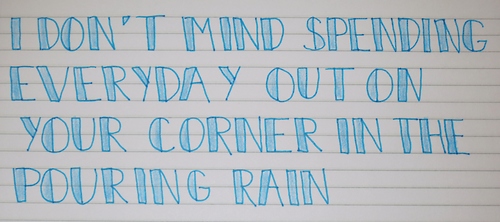 I DON'T MIND SPENDING
EVERYDAY OUT ON
YOUR CORNER IN THE
POURING RAIN